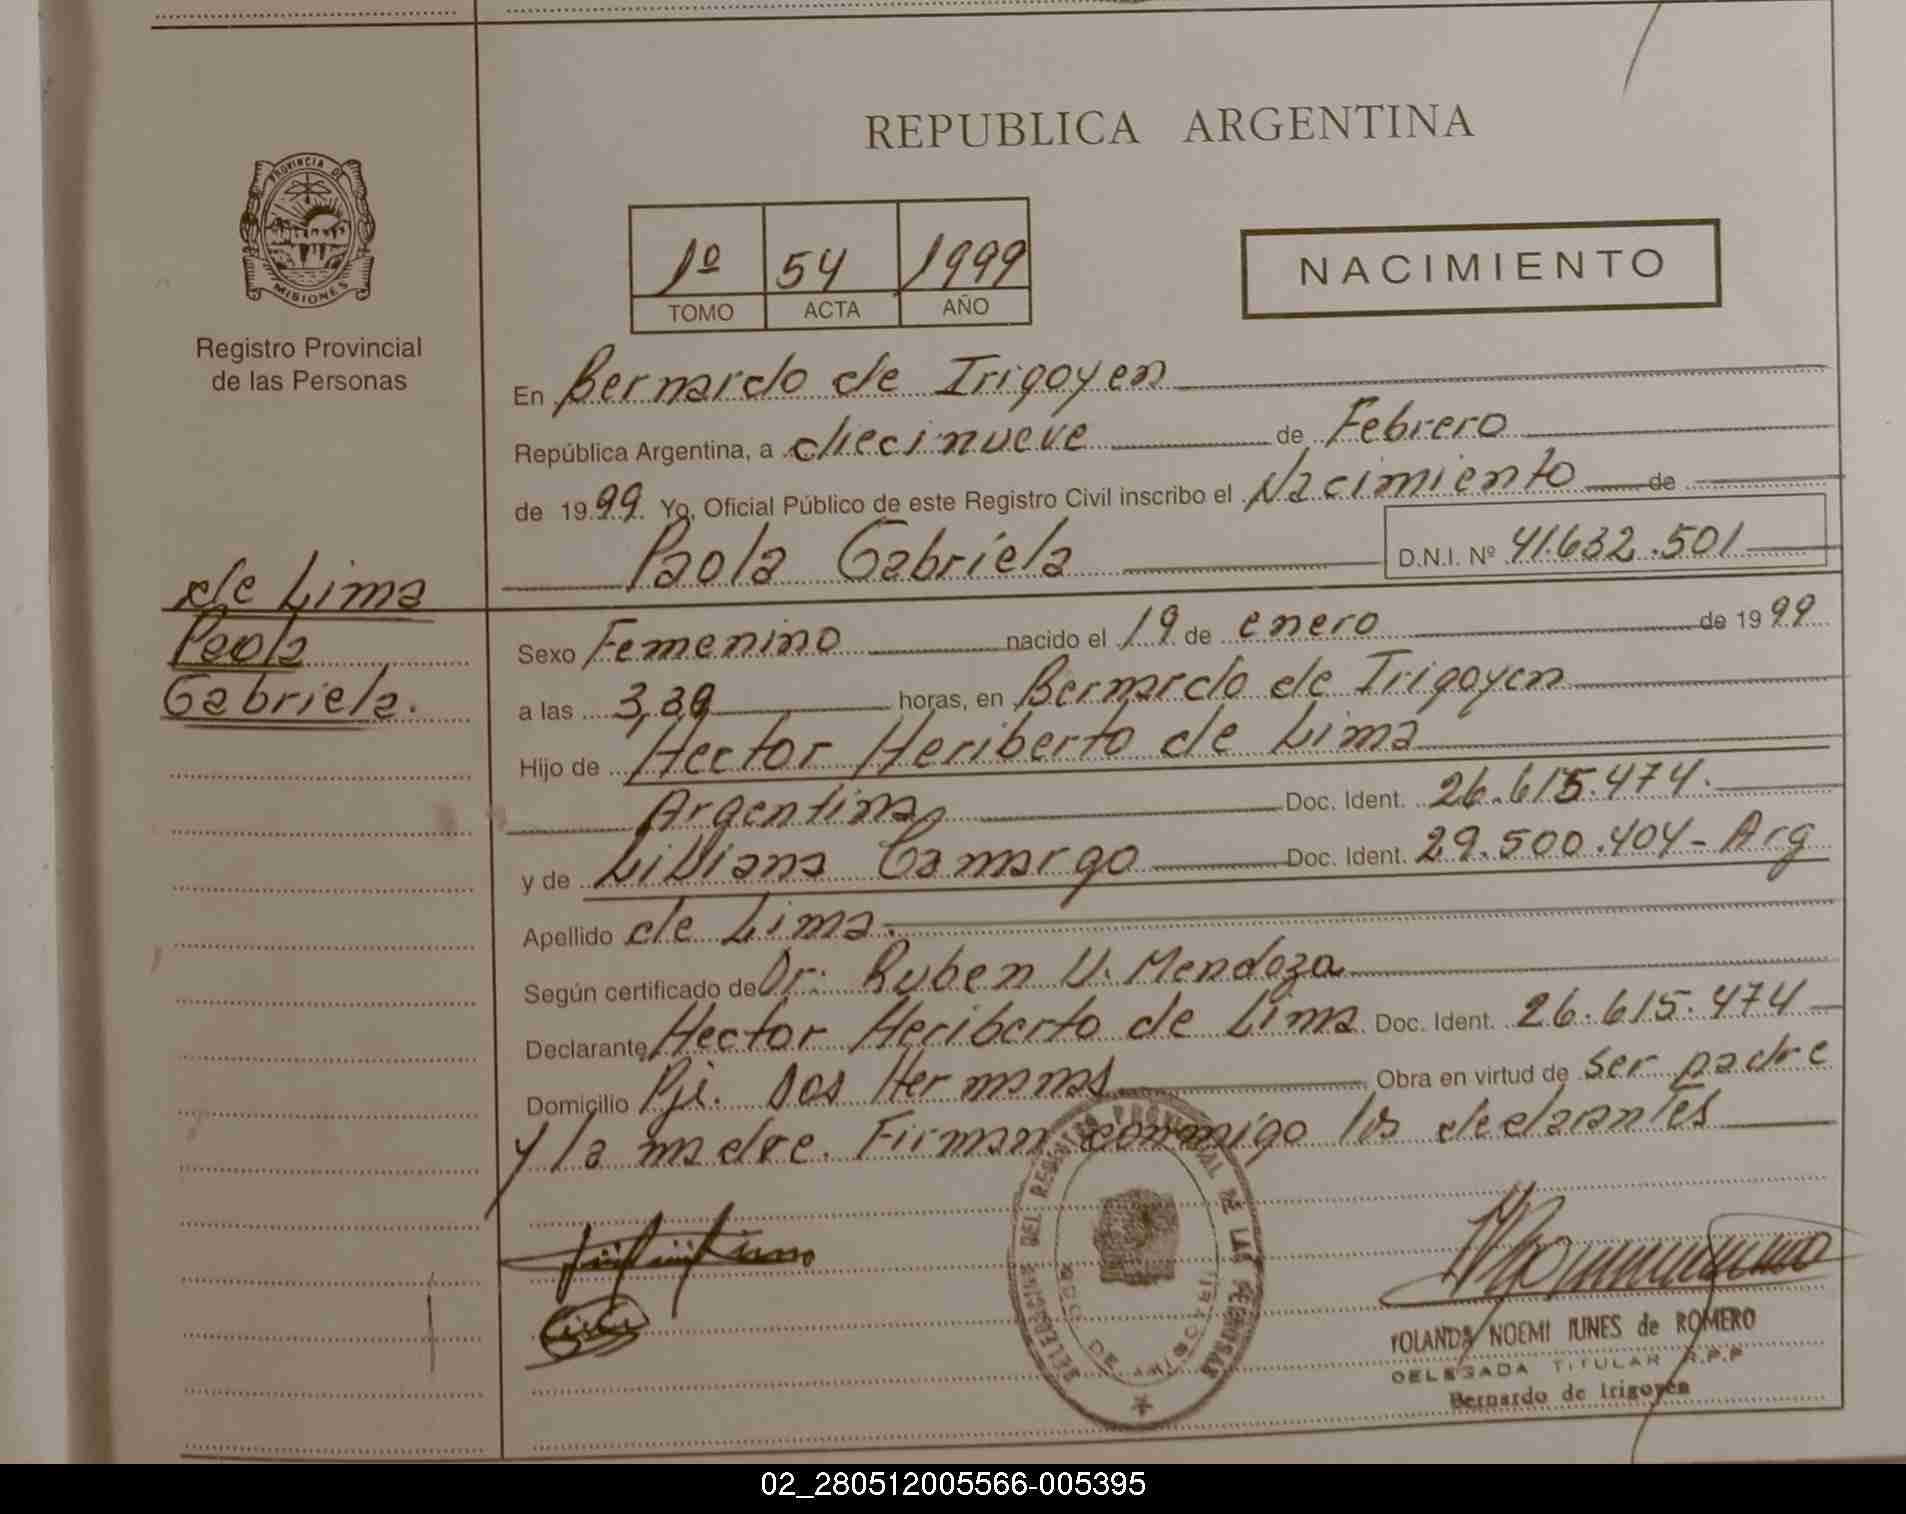 REPUBLICA ARGENTINA
PROVINCIA DE
MISIONES
Registro Provincial
de las Personas
1º 54 1999
TOMO ACTA AÑO
NACIMIENTO
En Bernardo de Irigoyen
República Argentina, a diecinueve de Febrero
de 1999 Yo, Oficial Público de este Registro Civil inscribo el Nacimiento de
Paola Gabriela D.N.I. Nº 41.632.501
de Lima
Paola
Gabriela.
Sexo Femenino nacido el 19 de enero de 1999
a las 3,30 horas, en Bernardo de Irigoyen
Hijo de Hector Heriberto de Lima
Argentina Doc. Ident. 26.615.474.
y de Liliana Camargo Doc. Ident. 29.500.404 - Arg
Apellido de Lima.
Según certificado de Dr. Ruben U. Mendoza
Declarante Hector Heriberto de Lima Doc. Ident. 26.615.474
Domicilio Pje. Dos Hermanas Obra en virtud de ser padre
y la madre. Firman conmigo los declarantes
DEL REGISTRO PROVINCIAL DE LAS PERSONAS
YOLANDA NOEMI IUNES de ROMERO
DELEGADA TITULAR R.P.P
Bernardo de Irigoyen
02_280512005566-005395